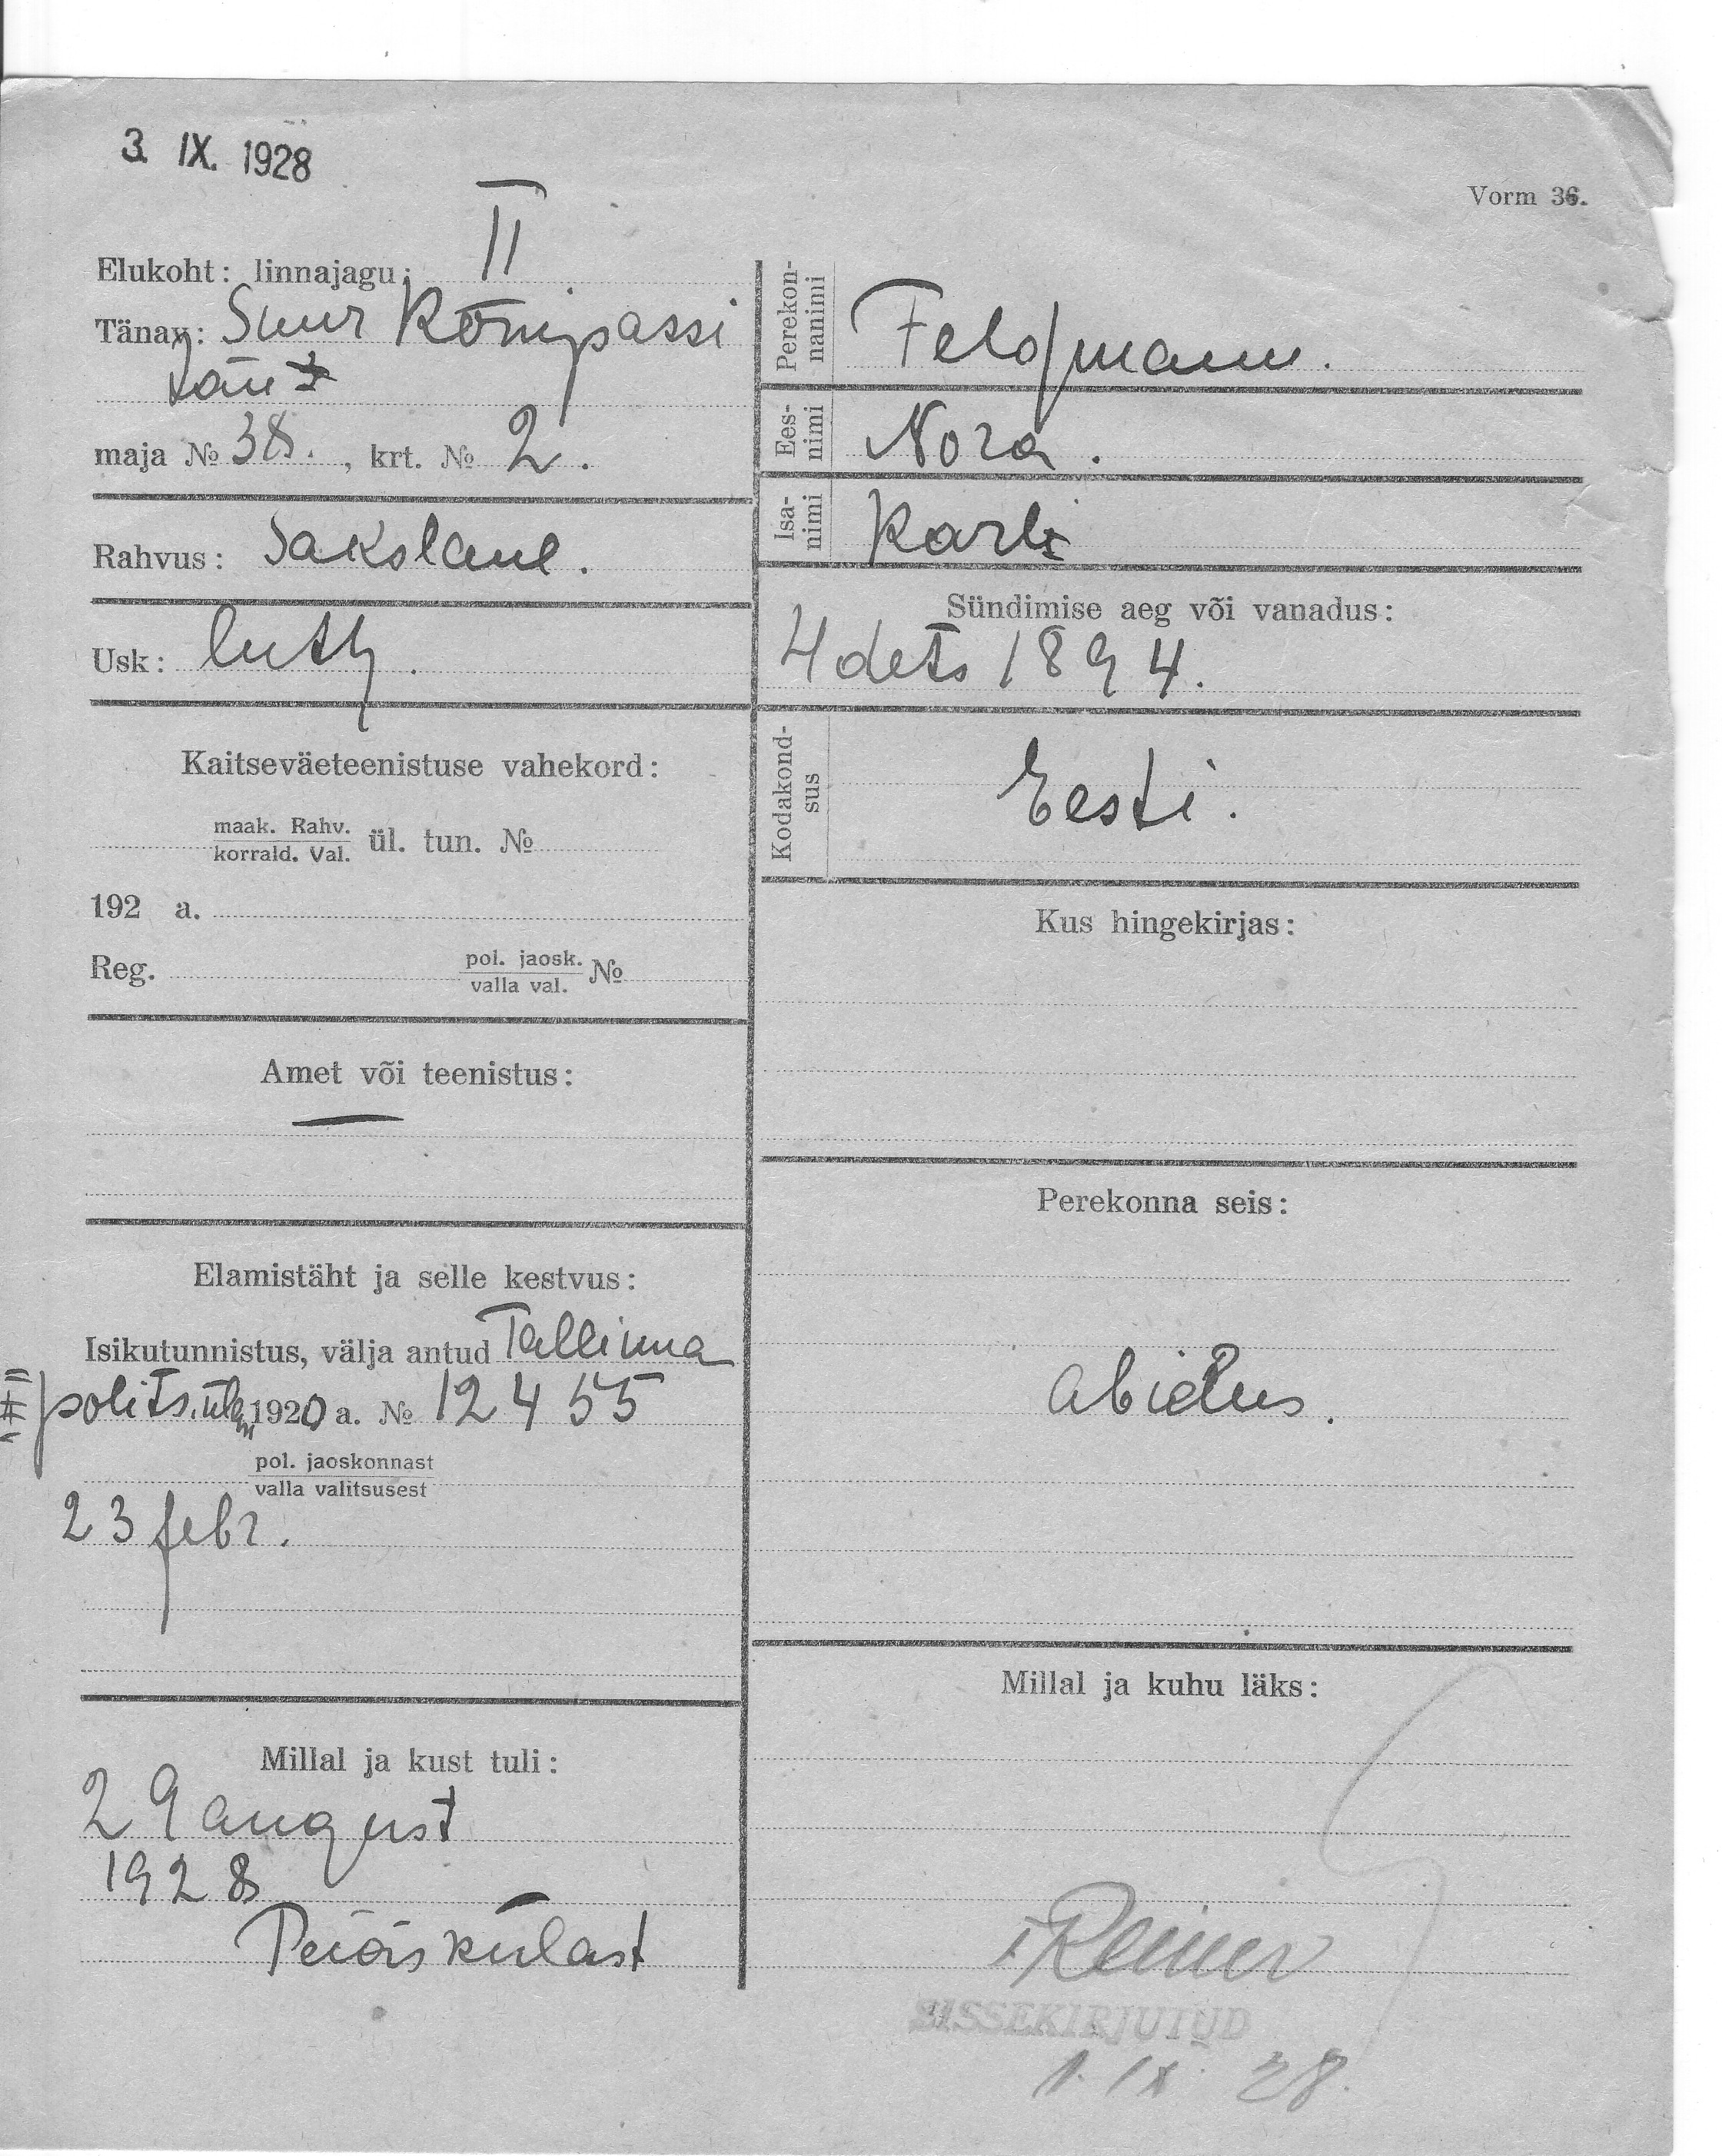 3. IX. 1928
Vorm 36.
Elukoht: linnajagu: II
Tänav: Suur Kompassi
tän
maja № 38. , krt. № 2.
Rahvus: Sakslane.
Usk: luth.
Kaitseväeteenistuse vahekord:
maak. Rahv.
korrald. Val. ül. tun. №
192 a.
Reg. pol. jaosk.
valla val. №
Amet või teenistus:
—
Elamistäht ja selle kestvus:
Isikutunnistus, välja antud Tallinna
polits. 1920 a. № 12455
pol. jaoskonnast
valla valitsusest
23 febr.
Millal ja kust tuli:
29 august
1928
Pääskülast
Perekon-
nanimi Feldmann.
Ees-
nimi Nora.
Isa-
nimi Karli
Sündimise aeg või vanadus:
4 dets 1894.
Kodakond-
sus Eesti.
Kus hingekirjas:
Perekonna seis:
abielus.
Millal ja kuhu läks:
Reimer
SISSEKIRJUTUD
1. IX. 28.